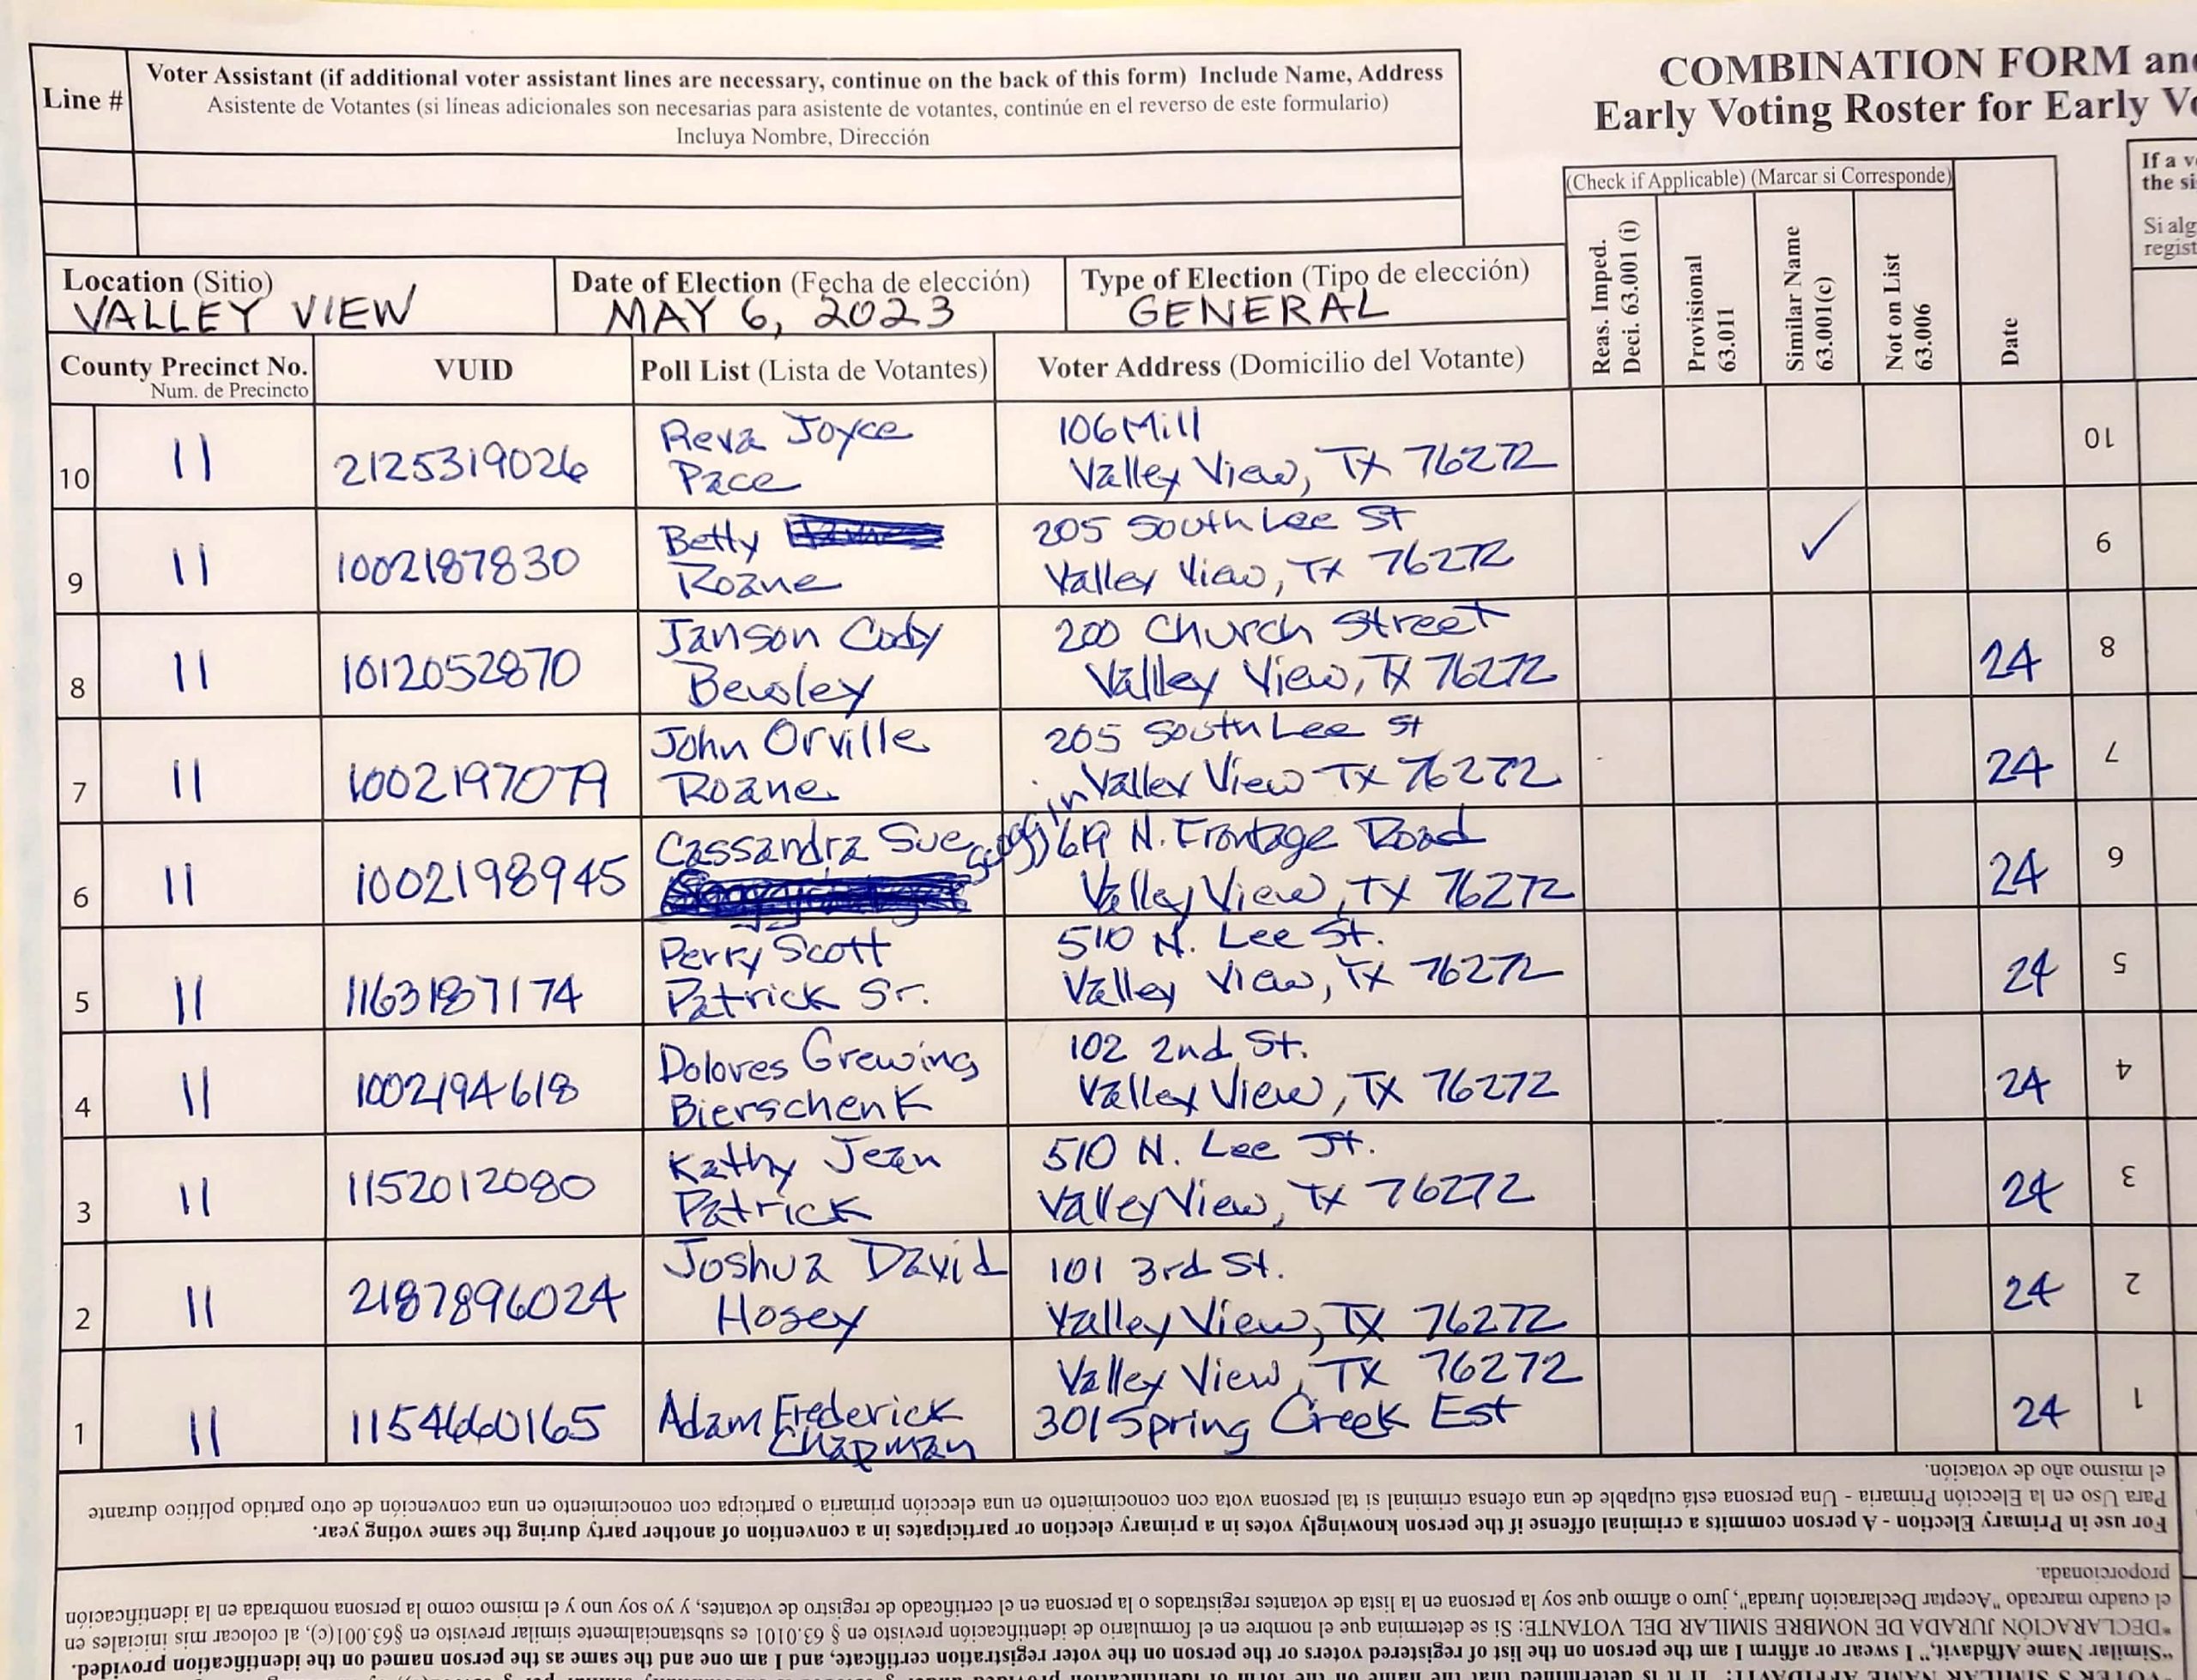 Line #
Voter Assistant (if additional voter assistant lines are necessary, continue on the back of this form) Include Name, Address
Asistente de Votantes (si líneas adicionales son necesarias para asistente de votantes, continúe en el reverso de este formulario)
Incluya Nombre, Dirección
COMBINATION FORM an
Early Voting Roster for Early V
(Check if Applicable) (Marcar si Corresponde)
Reas. Imped.
Deci. 63.001 (i)
Provisional
63.011
Similar Name
63.001(c)
Not on List
63.006
Date
If a v
the si
Si alg
regist
Location (Sitio)
VALLEY VIEW
Date of Election (Fecha de elección)
MAY 6, 2023
Type of Election (Tipo de elección)
GENERAL
County Precinct No.
Num. de Precincto
VUID
Poll List (Lista de Votantes)
Voter Address (Domicilio del Votante)
10 11 2125319026 Reva Joyce
Pace
106 Mill
Valley View, TX 76272
10
9 11 1002187830 Betty
Roane
205 South Lee St
Valley View, TX 76272
✓ 9
8 11 1012052870 Janson Cody
Bewley
200 Church Street
Valley View, TX 76272
24 8
7 11 1002197079 John Orville
Roane
205 South Lee St
Valley View TX 76272
24 7
6 11 1002198945 Cassandra Sue Scoggin
619 N. Frontage Road
Valley View, TX 76272
24 6
5 11 1163187174 Perry Scott
Patrick Sr.
510 N. Lee St.
Valley View, TX 76272
24 5
4 11 1002194618 Dolores Grewing
Bierschenk
102 2nd St.
Valley View, TX 76272
24 4
3 11 1152012080 Kathy Jean
Patrick
510 N. Lee St.
Valley View, TX 76272
24 3
2 11 2187896024 Joshua David
Hosey
101 3rd St.
Valley View, TX 76272
24 2
1 11 1154660165 Adam Frederick
Chapman
Valley View, TX 76272
301 Spring Creek Est
24 1
"Similar Name Affidavit," I swear or affirm I am the person on the list of registered voters or the person on the voter registration certificate, and I am one and the same as the person named on the identification provided.
*DECLARACIÓN JURADA DE NOMBRE SIMILAR DEL VOTANTE: Si se determina que el nombre en el formulario de identificación previsto en § 63.0101 es substancialmente similar previsto en §63.001(c), al colocar mis iniciales en
el cuadro marcado "Aceptar Declaración Jurada", juro o afirmo que soy la persona en la lista de votantes registrados o la persona en el certificado de registro de votantes, y yo soy uno y el mismo como la persona nombrada en la identificación
proporcionada.
For use in Primary Election - A person commits a criminal offense if the person knowingly votes in a primary election or participates in a convention of another party during the same voting year.
Para Uso en la Elección Primaria - Una persona está culpable de una ofensa criminal si tal persona vota con conocimiento en una elección primaria o participa con conocimiento en una convención de otro partido político durante
el mismo año de votación.